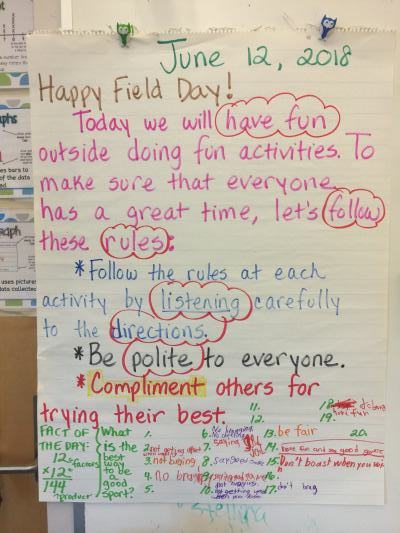 June 12, 2018
Happy Field Day!
Today we will have fun
outside doing fun activities. To
make sure that everyone
has a great time, let's follow
these rules:
*Follow the rules at each
activity by listening carefully
to the directions.
*Be polite to everyone.
*Compliment others for
trying their best.
FACT OF
THE DAY:
12 factors
x12
144
product
What
is the
best
way
to be
a
good
sport?
1.
2. not getting upset
3. not booing
4. no
5.
6. No
7. saying
8. say good
9.
10. not getting upset
11.
12.
13. be fair
14. have fun and say good
15. Don't boast when you win
16.
17. don't brag
18.
19. have fun
20.